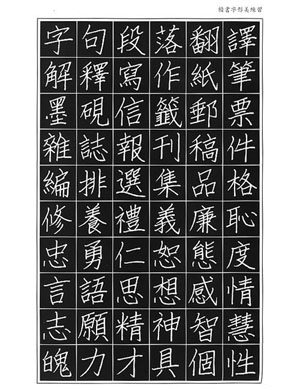 楷書字形美練習
字句段落翻譯
解釋寫作紙筆
墨硯信籤郵票
雜誌報刊稿件
編排選集品格
修養禮義廉恥
忠勇仁恕態度
言語思想感情
志願精神智慧
魄力才具個性